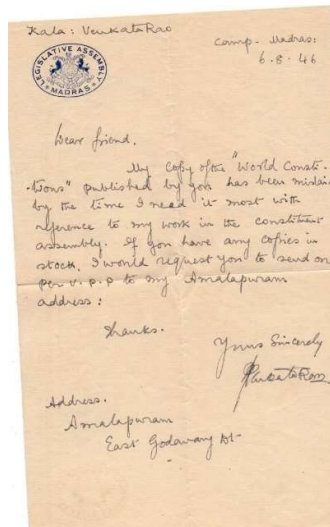 Kala: VenkataRao
LEGISLATIVE ASSEMBLY
MADRAS
Camp - Madras:
6.8.46
Dear friend,
My Copy of the "World Consti-
-tions" published by you has been mislaid
by the time I need it most with
reference to my work in the constituent
assembly. If you have any copies in
stock, I would request you to send on
per V.P.P to my Amalapuram
address:
Thanks.
Yours Sincerely
VenkataRao
Address.
Amalapuram
East Godavary Dt-